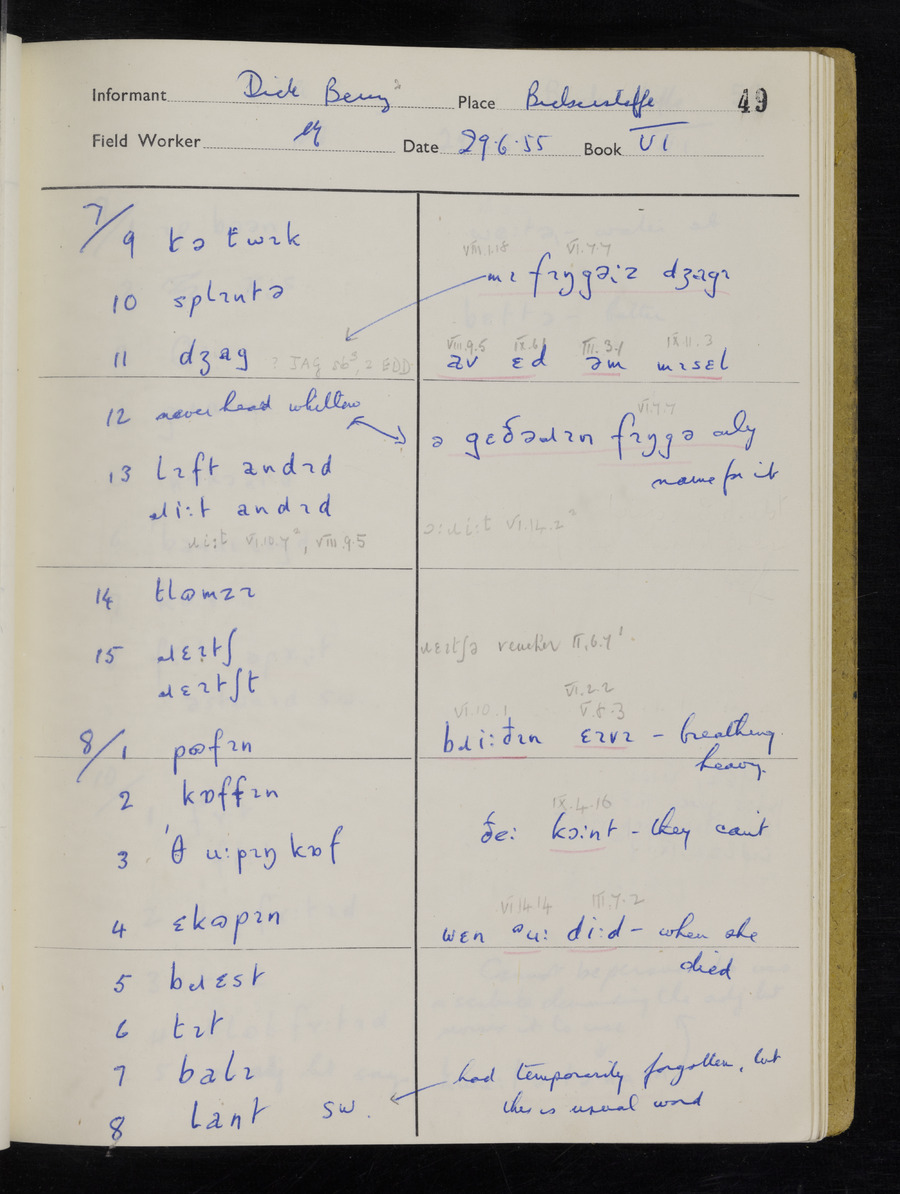 Informant Dick Berry² Place Bickerstaffe 49
Field Worker Date 29.6.55 Book VI
7/9 tə twɪk
VIII.1.18 VI.7.7
mɪ fɪŋgəɪz dʒagɪ
10 splɪntə
11 dʒag ? JAG sb³, 2 EDD
VIII.9.5 IX.6.1 III.3.1 IX.11.3
av ɛd əm mɪsɛl
12 never heard whitlow
VI.7.7
ə gɛðəɹɪn fɪŋgə only
name for it
13 lɪft andɪd
ɹi:t andɪd
ɹi:t VI.10.7², VIII.9.5
ə:ɹi:t VI.14.2²
14 tlɒmzɪ
15 ɹɛɪtʃ
ɹɛɪtʃə reacher II.6.4¹.
ɹɛɪtʃt
VI.2.2
VI.10.1 V.8.3
8/1 pɒfɪn
bɹi:ðɪn ɛɪvɪ – breathing
heavy.
2 kɒffɪn
IX.4.16
ðe: kɔ:nt – they can't
3 'θ u:pɪŋ kɒf
4 ɛkɒpɪn
VI.14.14 III.7.2
wɛn ᵊu: di:d – when she
died
5 bɹɛst
6 tɪt
7 balɪ
had temporarily forgotten, but
this is usual word
8 lant sw.